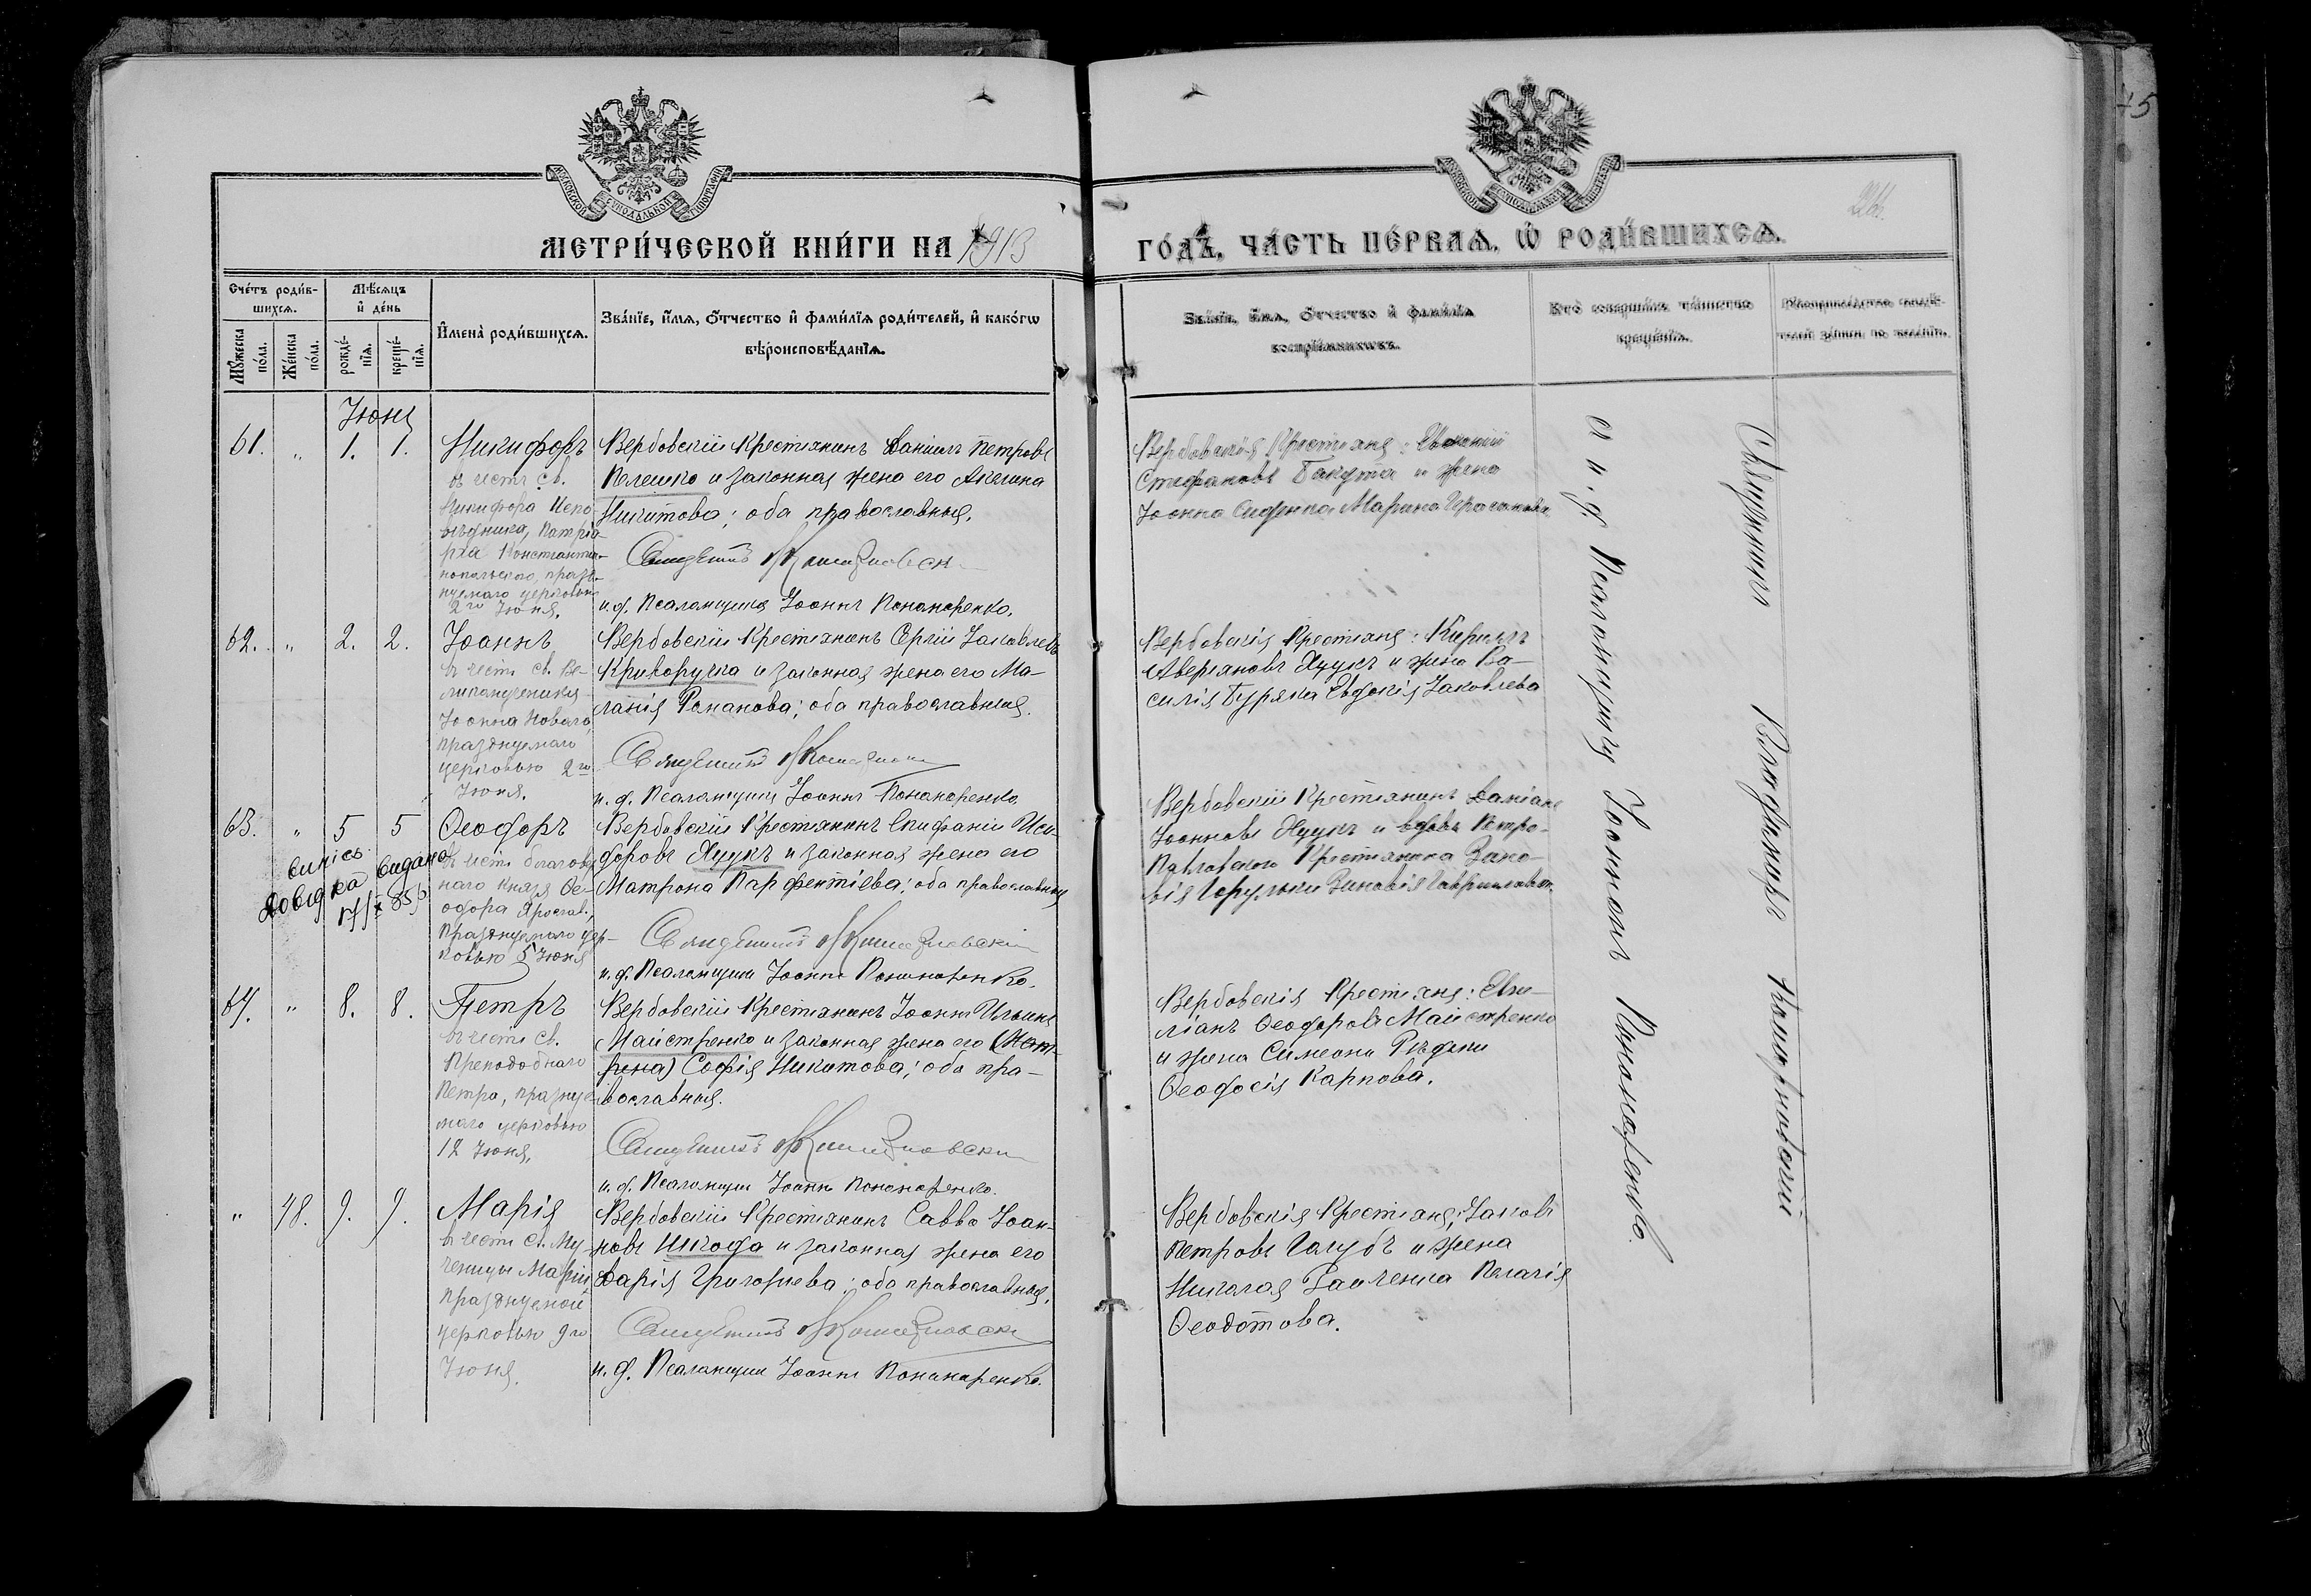 МЕТРИ́ЧЕСКОЙ КНИ́ГИ НА 1913
ГО́ДЪ, ЧА́СТЬ ПЕ́РВАѦ, Ѡ҆ РОДИ́ВШИХСѦ.
Сче́тъ роди́в-
шихсѧ.
Мѣ́сѧцъ
и҆ де́нь
Мꙋ́жеска по́ла.
Же́нска по́ла.
рожде́-
нїѧ.
креще́-
нїѧ.
И҆мена̀ роди́вшихсѧ.
Зва́нїе, и҆́мѧ, ѻ҆́тчество и҆ фами́лїѧ роди́телей, и҆ како́гѡ
вѣроисповѣ́данїѧ.
Зва́нїе, и҆́мѧ, ѻ҆́тчество и҆ фами́лїѧ
воспрїе́мниковъ.
Кто̀ соверша́лъ та́инство
креще́нїѧ.
Рꙋкоприкла́дство свидѣ́-
телей за́писи по жела́нїю.
Іюня
61. " 1. 1.
Никифоръ
въ честь св.
Никифора Испо-
вѣдника, Патріа-
рха Константи-
нопольскаго, празд-
нуемаго церковью
2го Іюня.
Вербовскій Крестьянинъ Даніилъ Петровъ
Пелешко и законная жена его Акелина
Никитова; оба православныя.
Священникъ
и. д. Псаломщика Іоаннъ Пономаренко.
Вербовскія Крестьяне: Евгеній
Стефановъ Бакута и жена
Іоанна Марина
62. " 2. 2.
Іоаннъ
въ честь св. Ве-
ликомученика
Іоанна Новаго,
празднуемаго
церковью 2го
Іюня.
Вербовскій Крестьянинъ Сергій Іаковлевъ
Криворучка и законная жена его Ма-
ланія Романова; оба православныя.
Священникъ
и. д. Псаломщика Іоаннъ Пономаренко
Вербовскія Крестьяне: Кириллъ
Аверьяновъ Жукъ и жена Ва-
силія Буряка Евдокія Іаковлева
63. " 5 5
Ѳеодоръ
въ честь благовѣр-
наго Князя Ѳе-
одора Ярослав.,
празднуемаго цер-
ковью 5 Іюня
Довідка видана
Вербовскій Крестьянинъ Епифаній Иси-
доровъ Жукъ и законная жена его
Матрона Парфентіева; оба православныя
Священникъ
и. д. Псаломщика Іоаннъ Пономаренко.
Вербовскій Крестьянинъ Даміанъ
Іоанновъ Жукъ и вдова Петро-
Павловскаго Крестьянина Зино-
Зиновія Гавриилова.
64. " 8. 8.
Петръ
въ честь св.
Преподобнаго
Петра, празднуе-
маго церковью
12 Іюня.
Вербовскій Крестьянинъ Іоаннъ Ильинъ
Майстренко и законная жена его (Мат-
рена) Софія Никитова; оба пра-
вославныя.
Священникъ
и. д. Псаломщика Іоаннъ Пономаренко.
Вербовскія Крестьяне: Еми-
ліанъ Ѳеодоровъ Майстренко
и жена Симеона Рѣдьки
Ѳеодосія Карпова.
" 48. 9. 9.
Марія
въ честь св. Му-
ченицы Маріи,
празднуемой
церковью 9го
Іюня.
Вербовскій Крестьянинъ Савва Іоан-
новъ Шкода и законная жена его
Дарія Григоріева; оба православныя.
Священникъ
и. д. Псаломщика Іоаннъ Пономаренко.
Вербовскія Крестьяне: Іаковъ
Петровъ Голубъ и жена
Николая Зайченка Пелагія
Ѳеодотова.
Священникъ Владиміръ
с и. д. Псаломщика Іоанномъ Пономаренко.